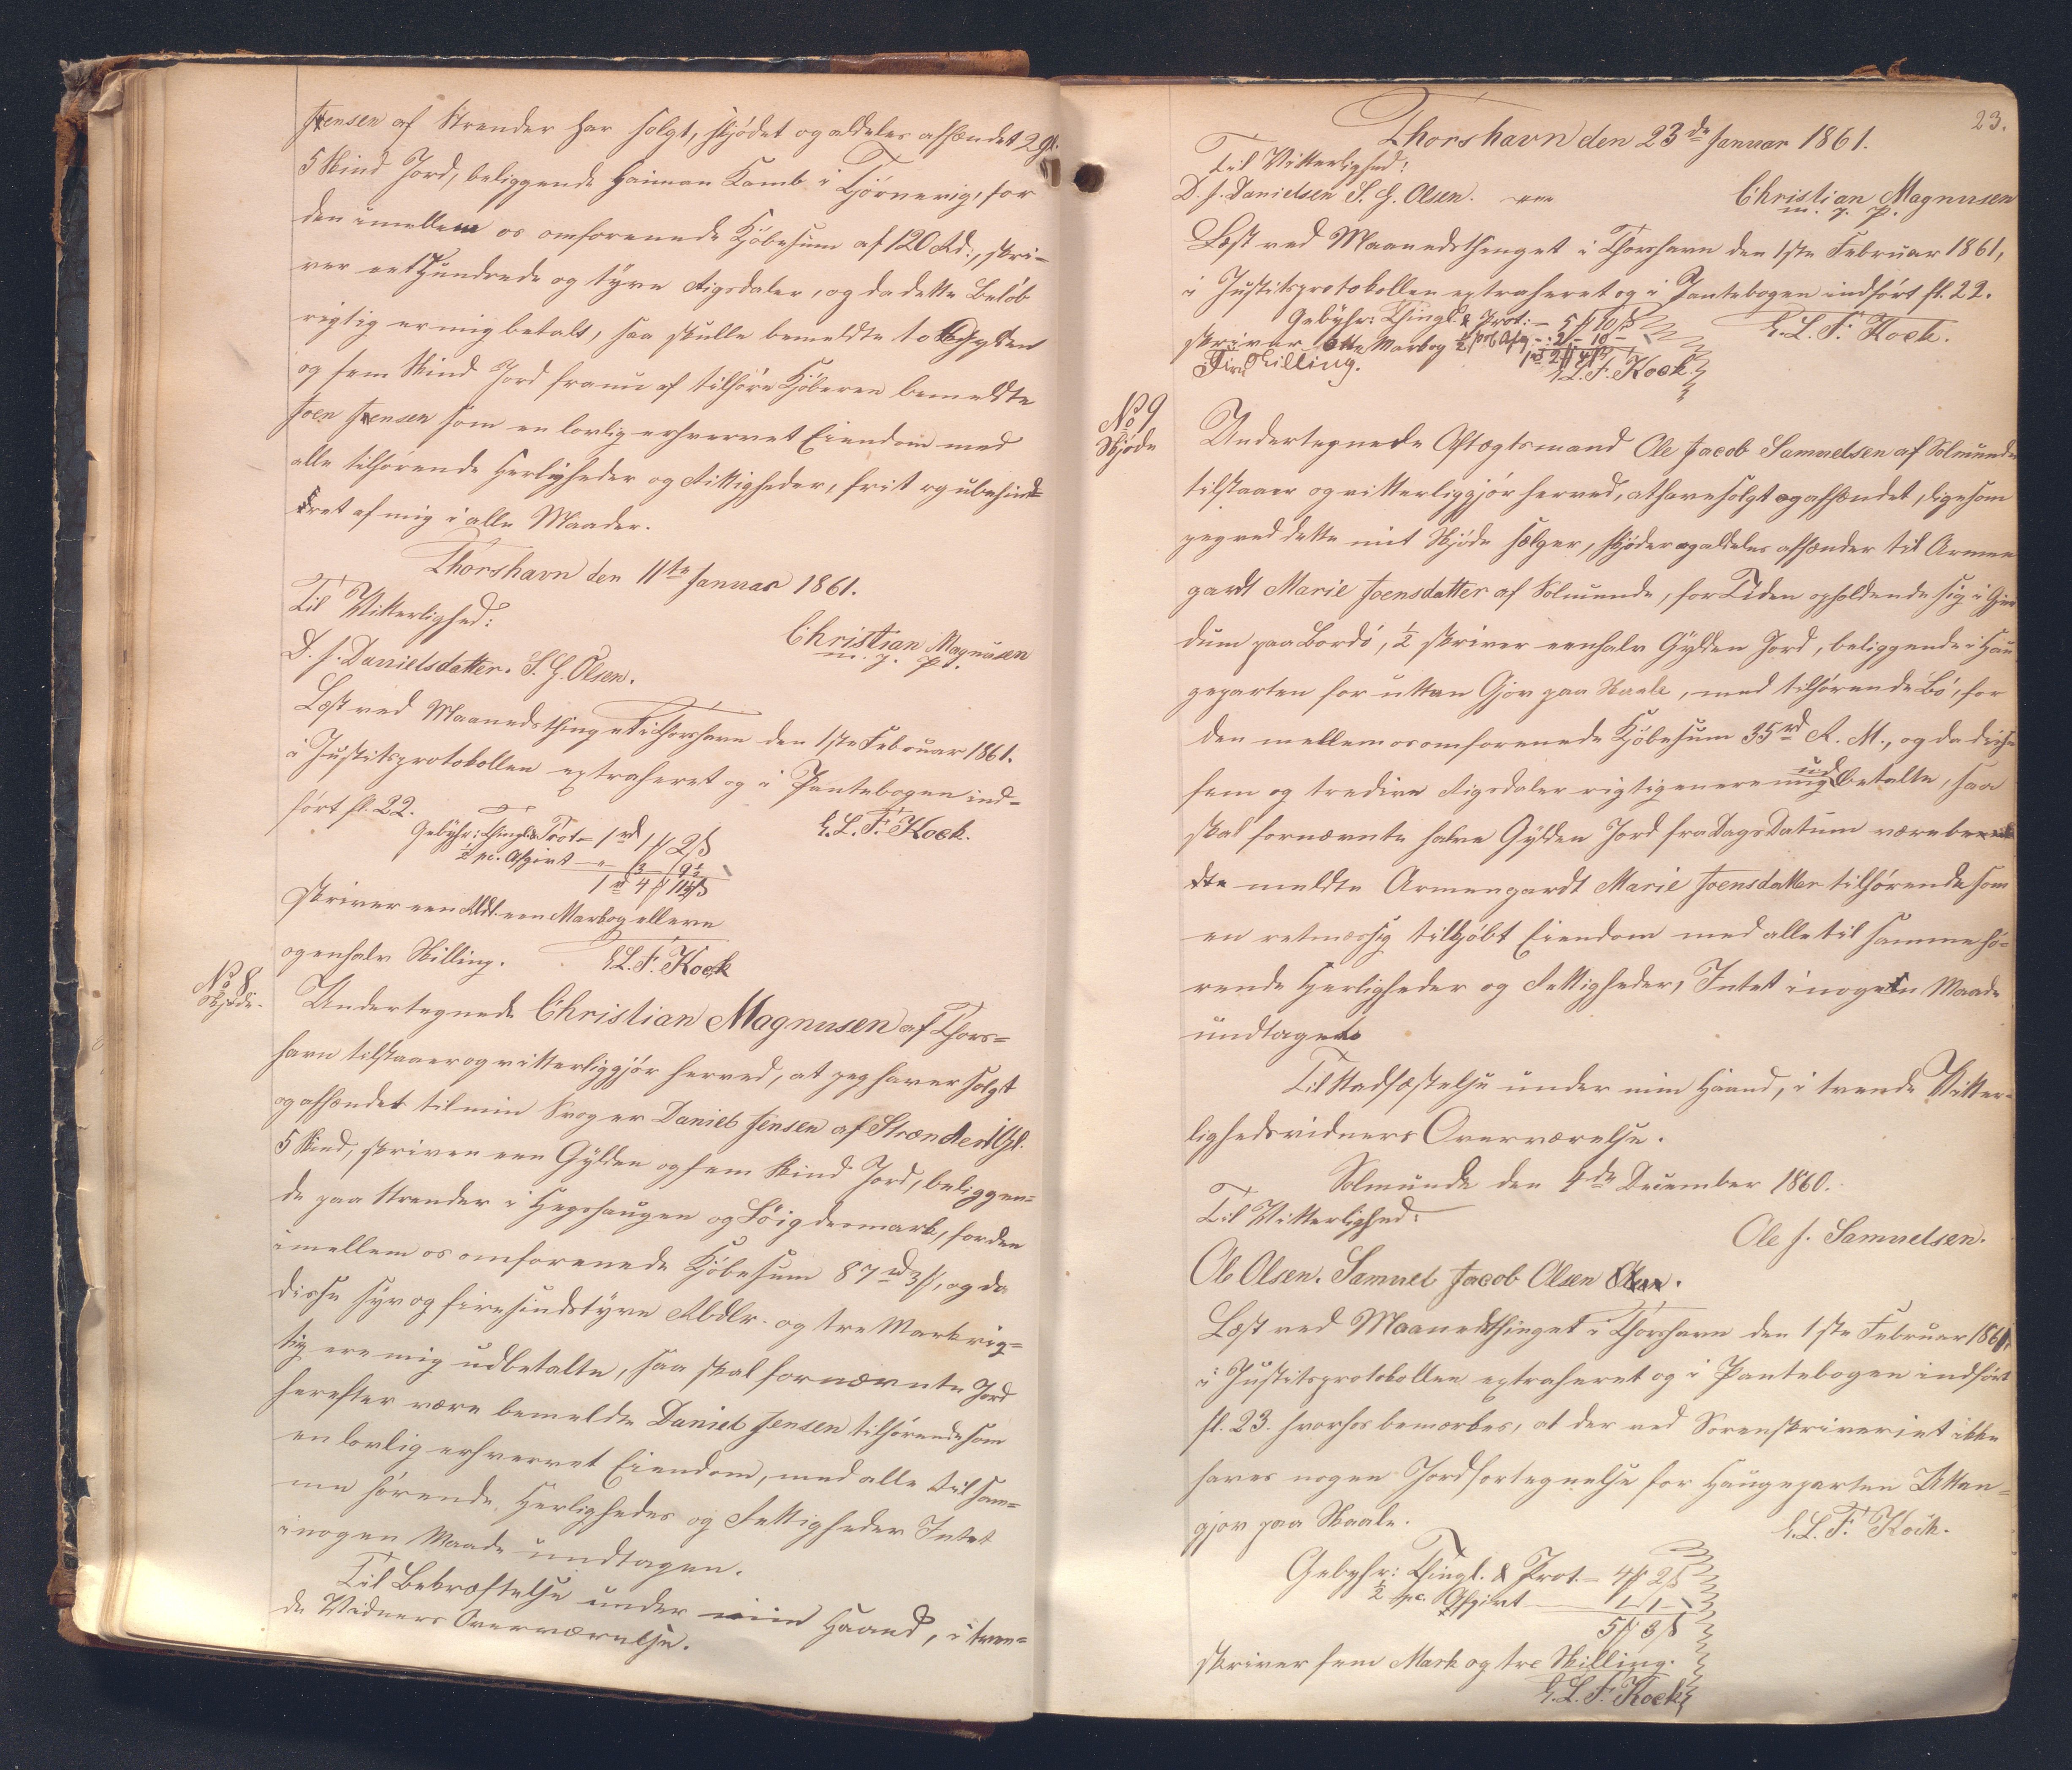 Jensen af Strender har solgt, skjødet og aldeles afhændet 2 Gl.
5 Skind Jord, beliggende Haiman Kamb i Tjørnevig, for
den imellem os omforenede Kjøbesum af 120 Rd:, skri-
ver eet Hundrede og tyve Rigsdaler, og da dette Beløb
rigtig er mig betalt, saa skulle bemeldte to Gylden
og fem Skind Jord fra nu af tilhøre Kjøberen bemeldte
Joen Jensen som en lovlig erhvervet Eiendom med
alle tilhørende Herligheder og Rettigheder, frit og ubehind-
ret af mig i alle Maader.
Thorshavn den 11te Januar 1861.
Til Vitterlighed:
Christian Magnusen
m. p.
D. J. Danielsdatter. S. G. Olsen.
Læst ved Maanedsthinget i Thorshavn den 1ste Februar 1861.
i Justitsprotokollen extraheret og i Pantebogen ind-
ført fl. 22.
E. L. F. Kock.
Gebyhr: Thingl. & Prot = 1 rd 1 ℳ 2 ß
½ pc. Afgivt — „ 3 9½
1 rd 4 ℳ 11½ ß
skriver een Rdl. een Mark og elleve
og en halv Skilling. E. L. F. Kock
No 8
Skjøde.
Undertegnede Christian Magnusen af Thors=
havn tilstaaer og vitterliggjør herved, at jeg haver solgt
og afhændet til min Svoger Daniel Jensen af Strænder 1 Gl.
5 Skind, skriver een Gylden og fem Skind Jord, beliggen=
de paa Strender i Hegshaugen og Løigdesmark, for den
imellem os omforenede Kjøbesum 87 rd 3 ℳ, og da
disse syv og firesindstyve Rbdlr. og tre Mark rig=
tig ere mig udbetalte, saa skal fornævnte Jord
herefter være bemeldte Daniel Jensen tilhørende som
en lovlig erhvervet Eiendom, med alle til sam=
me hørende Herligheder og Rettigheder Intet
i nogen Maade undtagen.
Til Bekræftelse under min Haand, i tven=
de Vidners Overværelse.
23.
Thorshavn den 23de Januar 1861.
Til Vitterlighed:
D. J. Danielsen S. G. Olsen.
Christian Magnusen
m. p.
Læst ved Maanedsthinget i Thorshavn den 1ste Februar 1861,
i Justitsprotokollen extraheret og i Pantebogen indført fl. 22.
Gebyhr: Thingl. & Prot: = 5 ℳ 10 ß
E. L. F. Kock.
skriver Otte Mark og ½ pct Afg. - 2 - 10 -
Fire Skilling.
E. L. F. Kock.
No 9
Skjøde
Undertegnede Aftægtsmand Ole Jacob Samuelsen af Solmunde
tilstaaer og vitterliggjør herved, at have solgt og afhændet, ligesom
jeg ved dette mit Skjøde sælger, skjøder og aldeles afhænder til Armen
gardt Marie Joensdatter af Solmunde, for Tiden opholdende sig i Gjer
dum paa Bordø, ½ skriver een halv Gylden Jord, beliggende i Hau
geparten for uttan Gjov paa Skaale, med tilhørende Bø, for
den mellem os omforenede Kjøbesum 35 rd R. M., og da disse
fem og tredive Rigsdaler rigtigen ere mig udbetalte, saa
skal fornævnte halve Gylden Jord fra Dags Datum være be
meldte Armengardt Marie Joensdatter tilhørende som
en retmæssig tilkjøbt Eiendom med alle til samme hø=
rende Herligheder og Rettigheder, Intet i nogen Maade
undtaget.
Til Stadfæstelse under min Haand, i tvende Vitter=
lighedsvidners Overværelse.
Solmunde den 4de December 1860.
Til Vitterlighed:
Ole J. Samuelsen.
Ole Olsen. Samuel Jacob Olsen.
Læst ved Maanedsthinget i Thorshavn den 1ste Februar 1861,
i Justitsprotokollen extraheret og i Pantebogen indført
fl. 23. hvorhos bemærkes, at der ved Sorenskriveriet ikke
haves nogen Jordfortegnelse for Haugeparten Uttan=
gjov paa Skaale.
E. L. F. Kock.
Gebyhr: Thingl. & Prot. = 4 ℳ 2 ß
½ pc. Afgivt — 1 1
5 ℳ 3 ß
skriver fem Mark og tre Skilling.
E. L. F. Kock